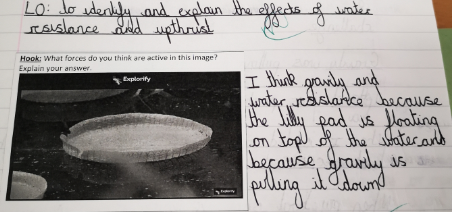 LO: to identify and explain the effects of water
resistance and upthrust
Hook: What forces do you think are active in this image?
Explain your answer.
Explorify
I think gravity and
water resistance because
the lilly pad is floating
on top of the water and
because gravity is
pulling it down
Explorify